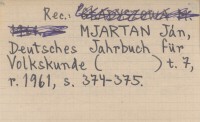 Rec.:
MJARTAN Ján,
Deutsches Jahrbuch für
Volkskunde ( ) t. 7,
r. 1961, s. 374-375.